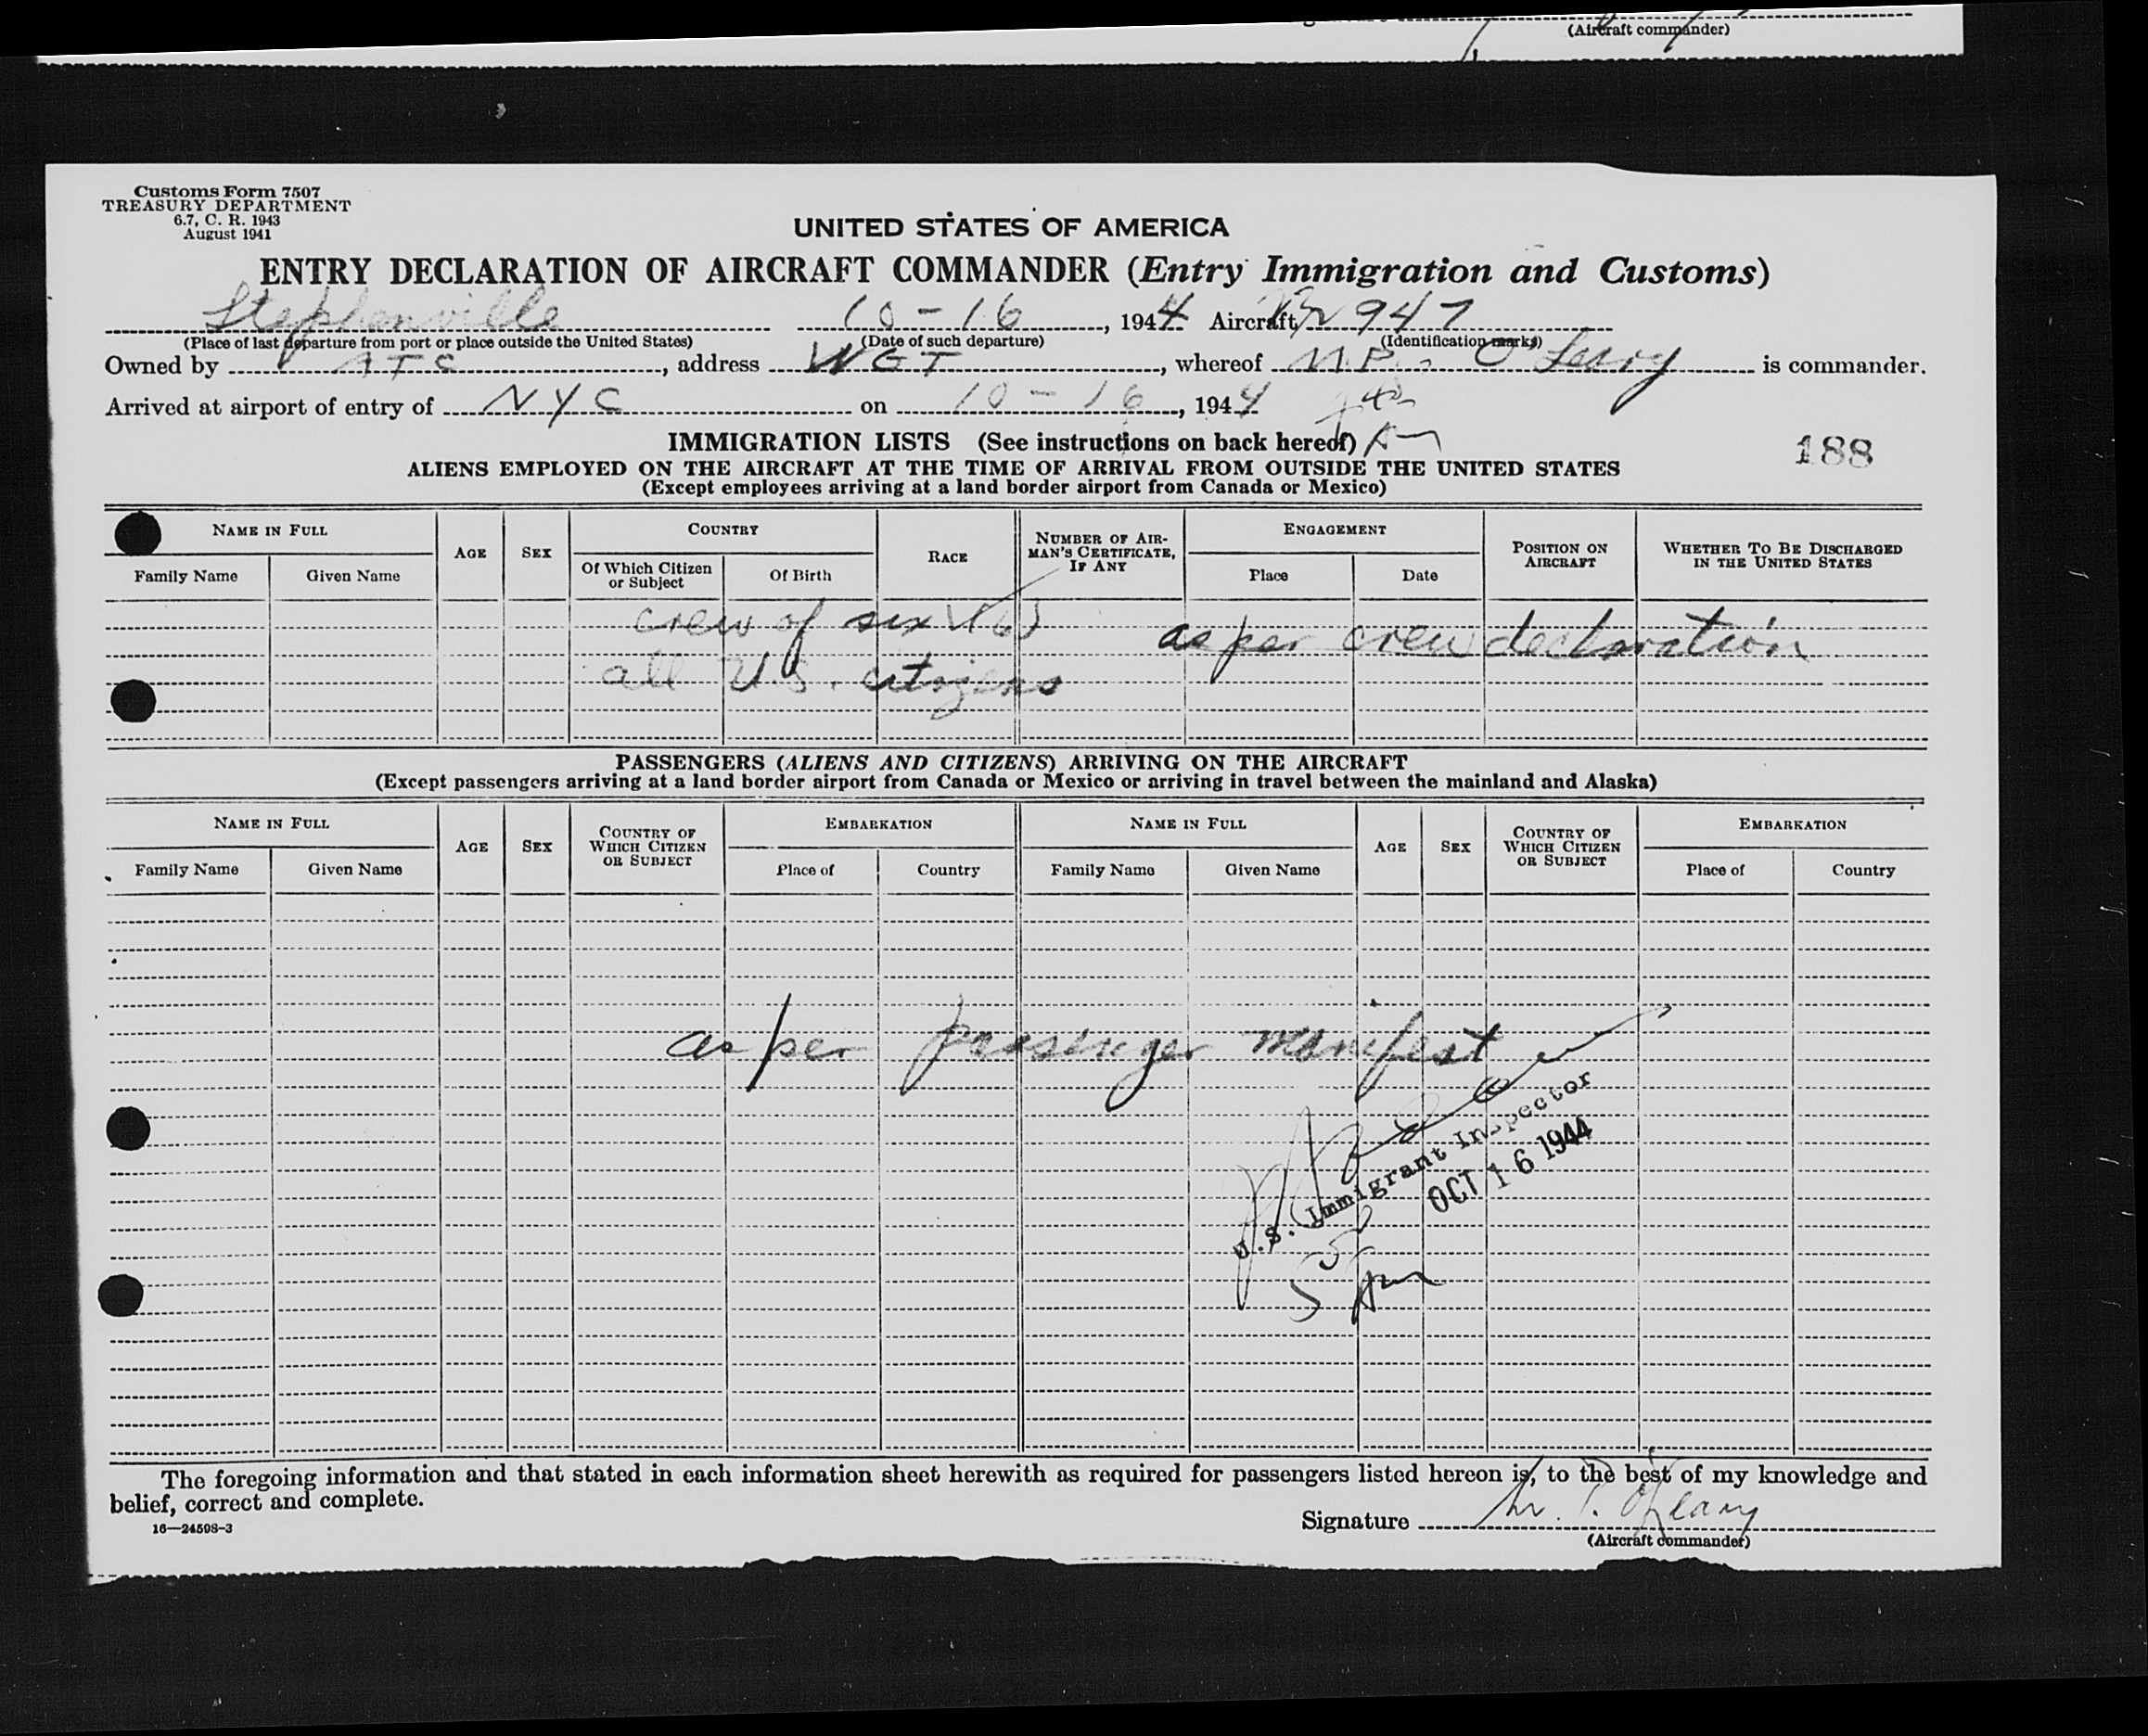 (Aircraft commander)
Customs Form 7507
TREASURY DEPARTMENT
6.7, C. R. 1943
August 1941
UNITED STATES OF AMERICA
ENTRY DECLARATION OF AIRCRAFT COMMANDER (Entry Immigration and Customs)
Stephenville 10-16, 1944 Aircraft 947
(Place of last departure from port or place outside the United States) (Date of such departure) (Identification marks)
Owned by ATC, address WGT, whereof M.P. O'Leary is commander.
Arrived at airport of entry of NYC on 10-16, 1944
IMMIGRATION LISTS (See instructions on back hereof)
188
ALIENS EMPLOYED ON THE AIRCRAFT AT THE TIME OF ARRIVAL FROM OUTSIDE THE UNITED STATES
(Except employees arriving at a land border airport from Canada or Mexico)
NAME IN FULL AGE SEX COUNTRY RACE NUMBER OF AIRMAN'S CERTIFICATE, IF ANY ENGAGEMENT POSITION ON AIRCRAFT WHETHER TO BE DISCHARGED IN THE UNITED STATES
Family Name Given Name Of Which Citizen or Subject Of Birth Place Date
crew of six (6) as per crew declaration
all U.S. citizens
PASSENGERS (ALIENS AND CITIZENS) ARRIVING ON THE AIRCRAFT
(Except passengers arriving at a land border airport from Canada or Mexico or arriving in travel between the mainland and Alaska)
NAME IN FULL AGE SEX COUNTRY OF WHICH CITIZEN OR SUBJECT EMBARKATION NAME IN FULL AGE SEX COUNTRY OF WHICH CITIZEN OR SUBJECT EMBARKATION
Family Name Given Name Place of Country Family Name Given Name Place of Country
as per passenger manifest
U.S. Immigrant Inspector
OCT 16 1944
The foregoing information and that stated in each information sheet herewith as required for passengers listed hereon is, to the best of my knowledge and
belief, correct and complete.
16—24598-3
Signature M. P. O'Leary
(Aircraft commander)